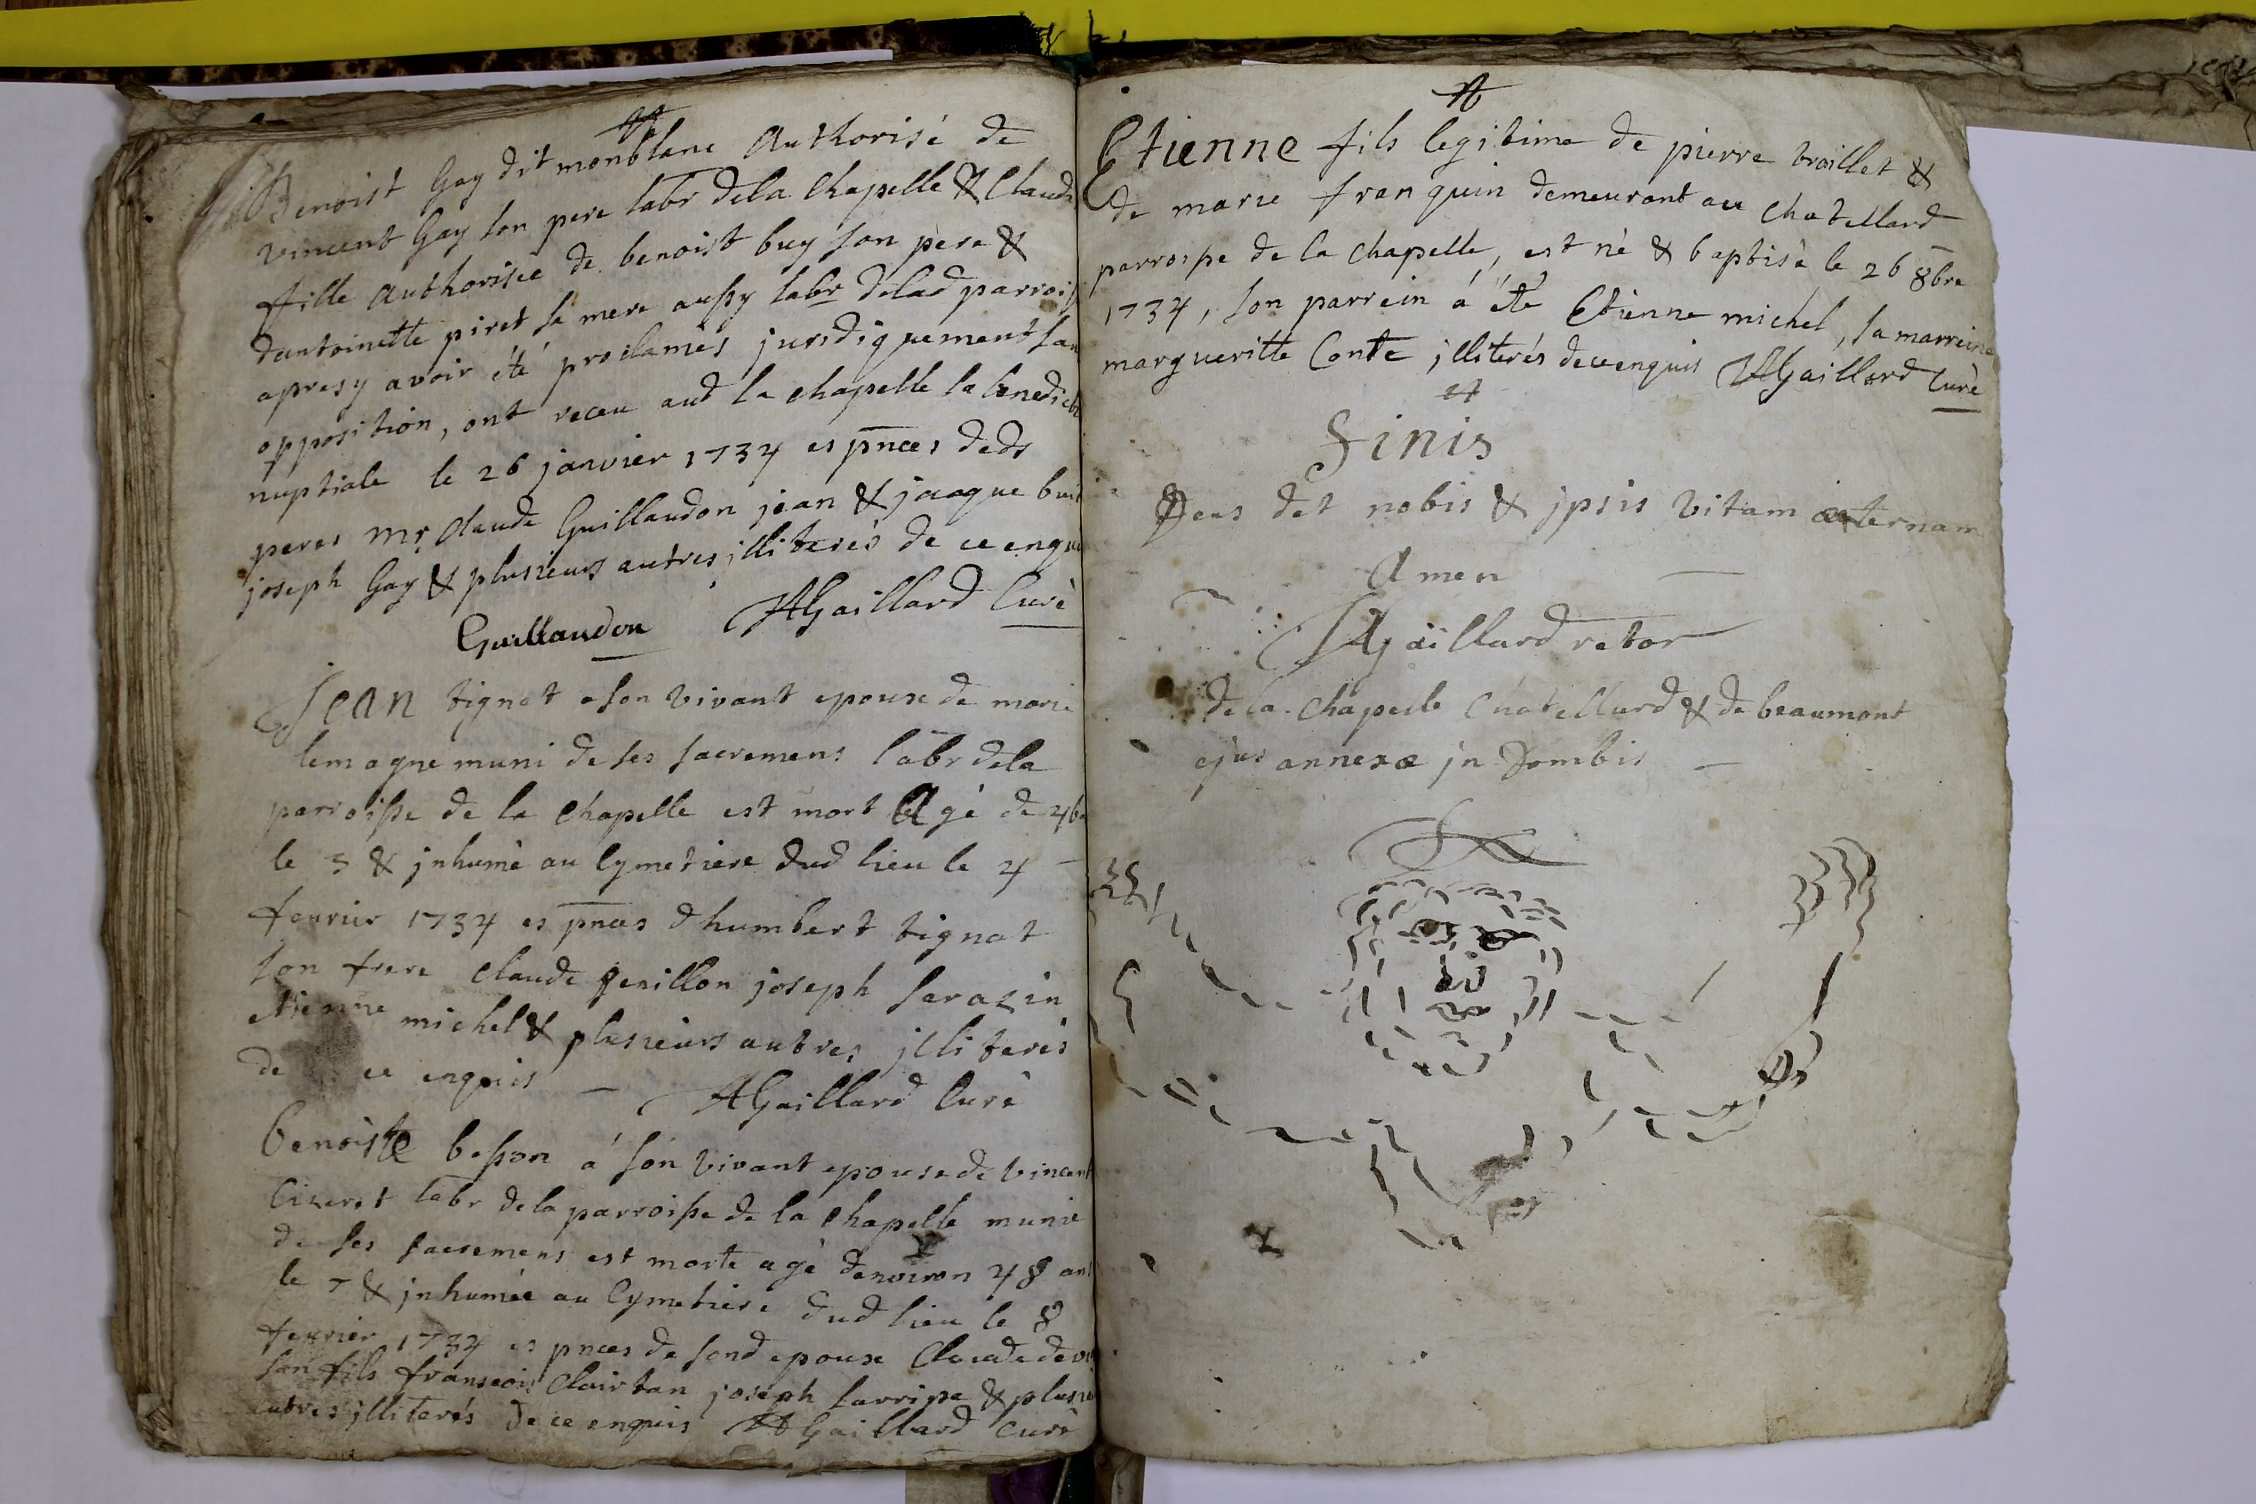 Benoist Gay dit monblanc Authorisé de
vincent Gay son pere labr dela Chapelle & Claude
fille Authorisée de benoist buy son pere &
dantoinette piret sa mere aussy labr delad parrois
apresy avoir été proclamés juridiquement san
opposition, ont receu aud la chapelle la benedict
nuptiale le 26 janvier 1734 es pnces deds
peres Mr Claude Guillaudon jean & jacque buy
joseph Gay & plusieurs autres illiterés de ce enquis
Guillaudon AGaillard Curé
Jean tignat a son vivant epoux de marie
lemagne muni de ses sacremens labr dela
parroisse de la Chapelle est mort Agé de 46
le 3 & jnhumé au Cymetiere dud lieu le 4
fevrier 1734 es pnces dhumbert tignat
son frere Claude genillon joseph sarazin
etienne michel & plusieurs autres illiterés
de ce enquis AGaillard Curé
Benoiste besson á son vivant epouse de vincent
Cizeret labr dela parroisse de la Chapelle munie
de ses sacremens est morte agé denviron 48 ans
le 7 & jnhumée au Cymetiere dud lieu le 8
fevrier 1734 es pnces de sond epoux Claude
son fils franscois Clairtan joseph & plusieu
autres illiterés de ce enquis AGaillard Curé
Etienne fils legitime de pierre braillet &
de marie franquin demeurant au Chatellard
parroisse de la Chapelle, est né & baptisé le 26 8bre
1734, son parrein á été Etienne michel, sa marreine
margueritte Conte jlliterés de ce enquis AGaillard Curé
Finis
Deus det nobis & jpsis vitam æternam
Amen
AGaillard retor
de la Chapelle Chatellard & de beaumont
ejus annexæ jn Dombis